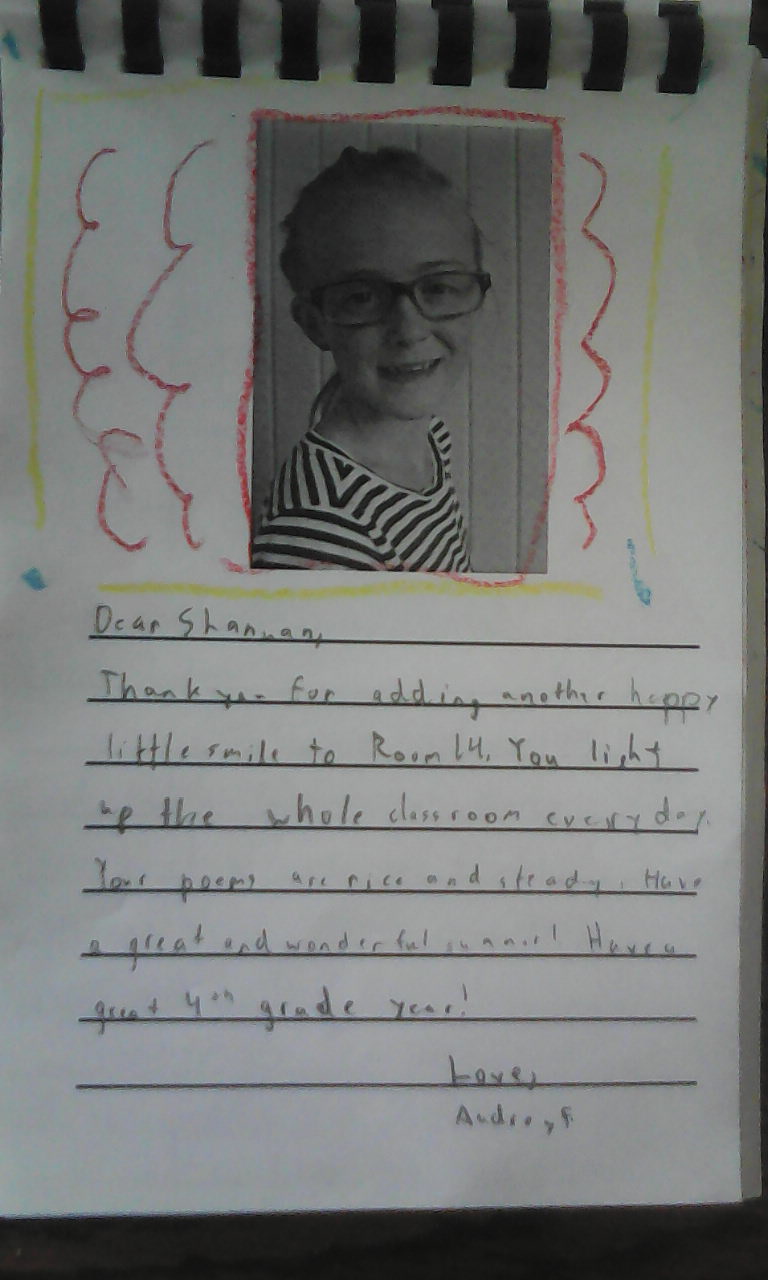 Dear Shannan,
Thank you for adding another happy
little smile to Room 14. You light
up the whole classroom every day.
Your poems are nice and steady. Have
a great and wonderful summer! Have a
great 4th grade year!
Love,
Audrey F